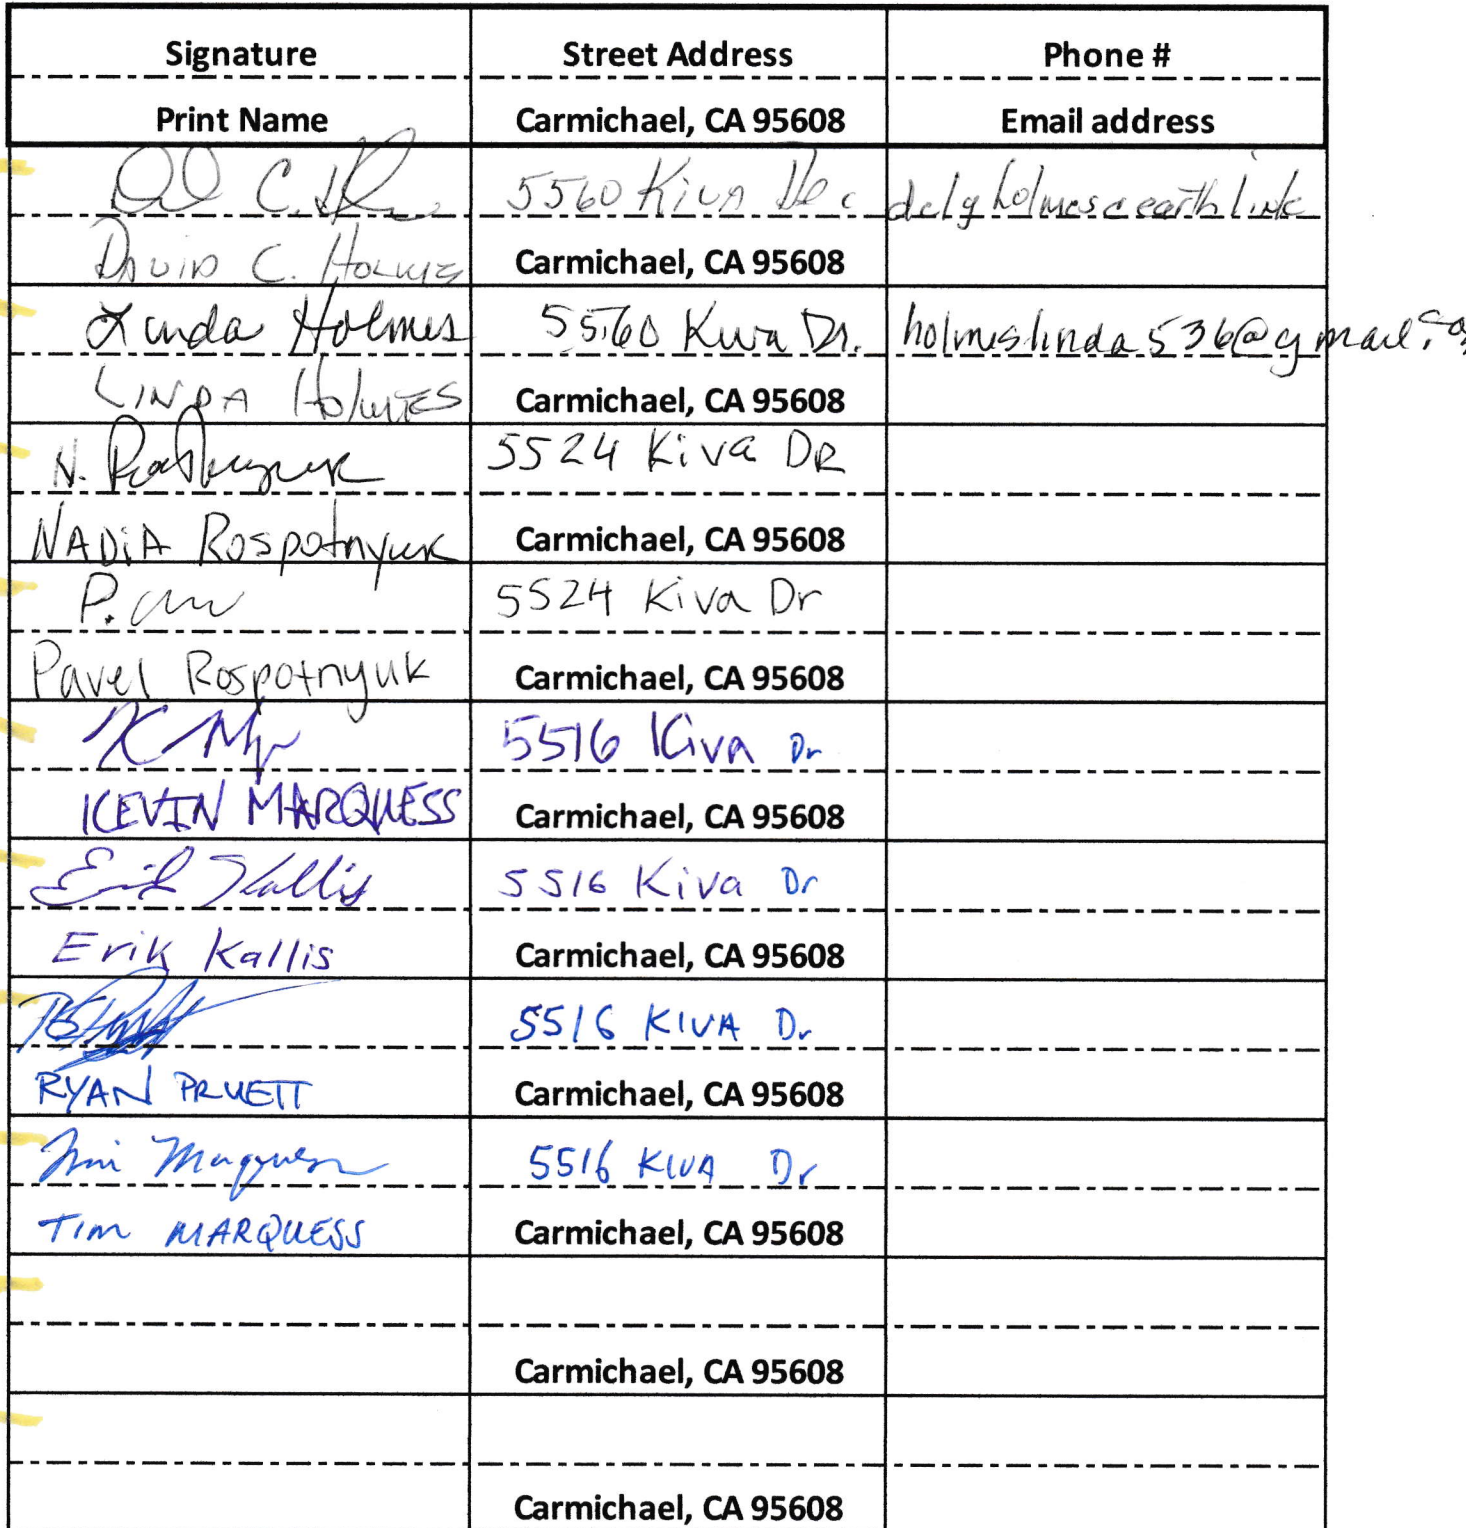 Signature Street Address Phone #
Print Name Carmichael, CA 95608 Email address
5560 Kiva
David C. Holmes Carmichael, CA 95608
Linda Holmes 5560 Kiva Dr. holmeslinda536@gmail.co
LINDA HolmES Carmichael, CA 95608
N. 5524 Kiva DR
NADiA Rospotnyuk Carmichael, CA 95608
P. 5524 Kiva Dr
Pavel Rospotnyuk Carmichael, CA 95608
K 5516 Kiva Dr
KEVIN MARQUESS Carmichael, CA 95608
Erik Kallis 5516 Kiva Dr
Erik Kallis Carmichael, CA 95608
5516 KIVA Dr
RYAN PRUETT Carmichael, CA 95608
Tim Marquess 5516 KIVA Dr
TIM MARQUESS Carmichael, CA 95608
Carmichael, CA 95608
Carmichael, CA 95608